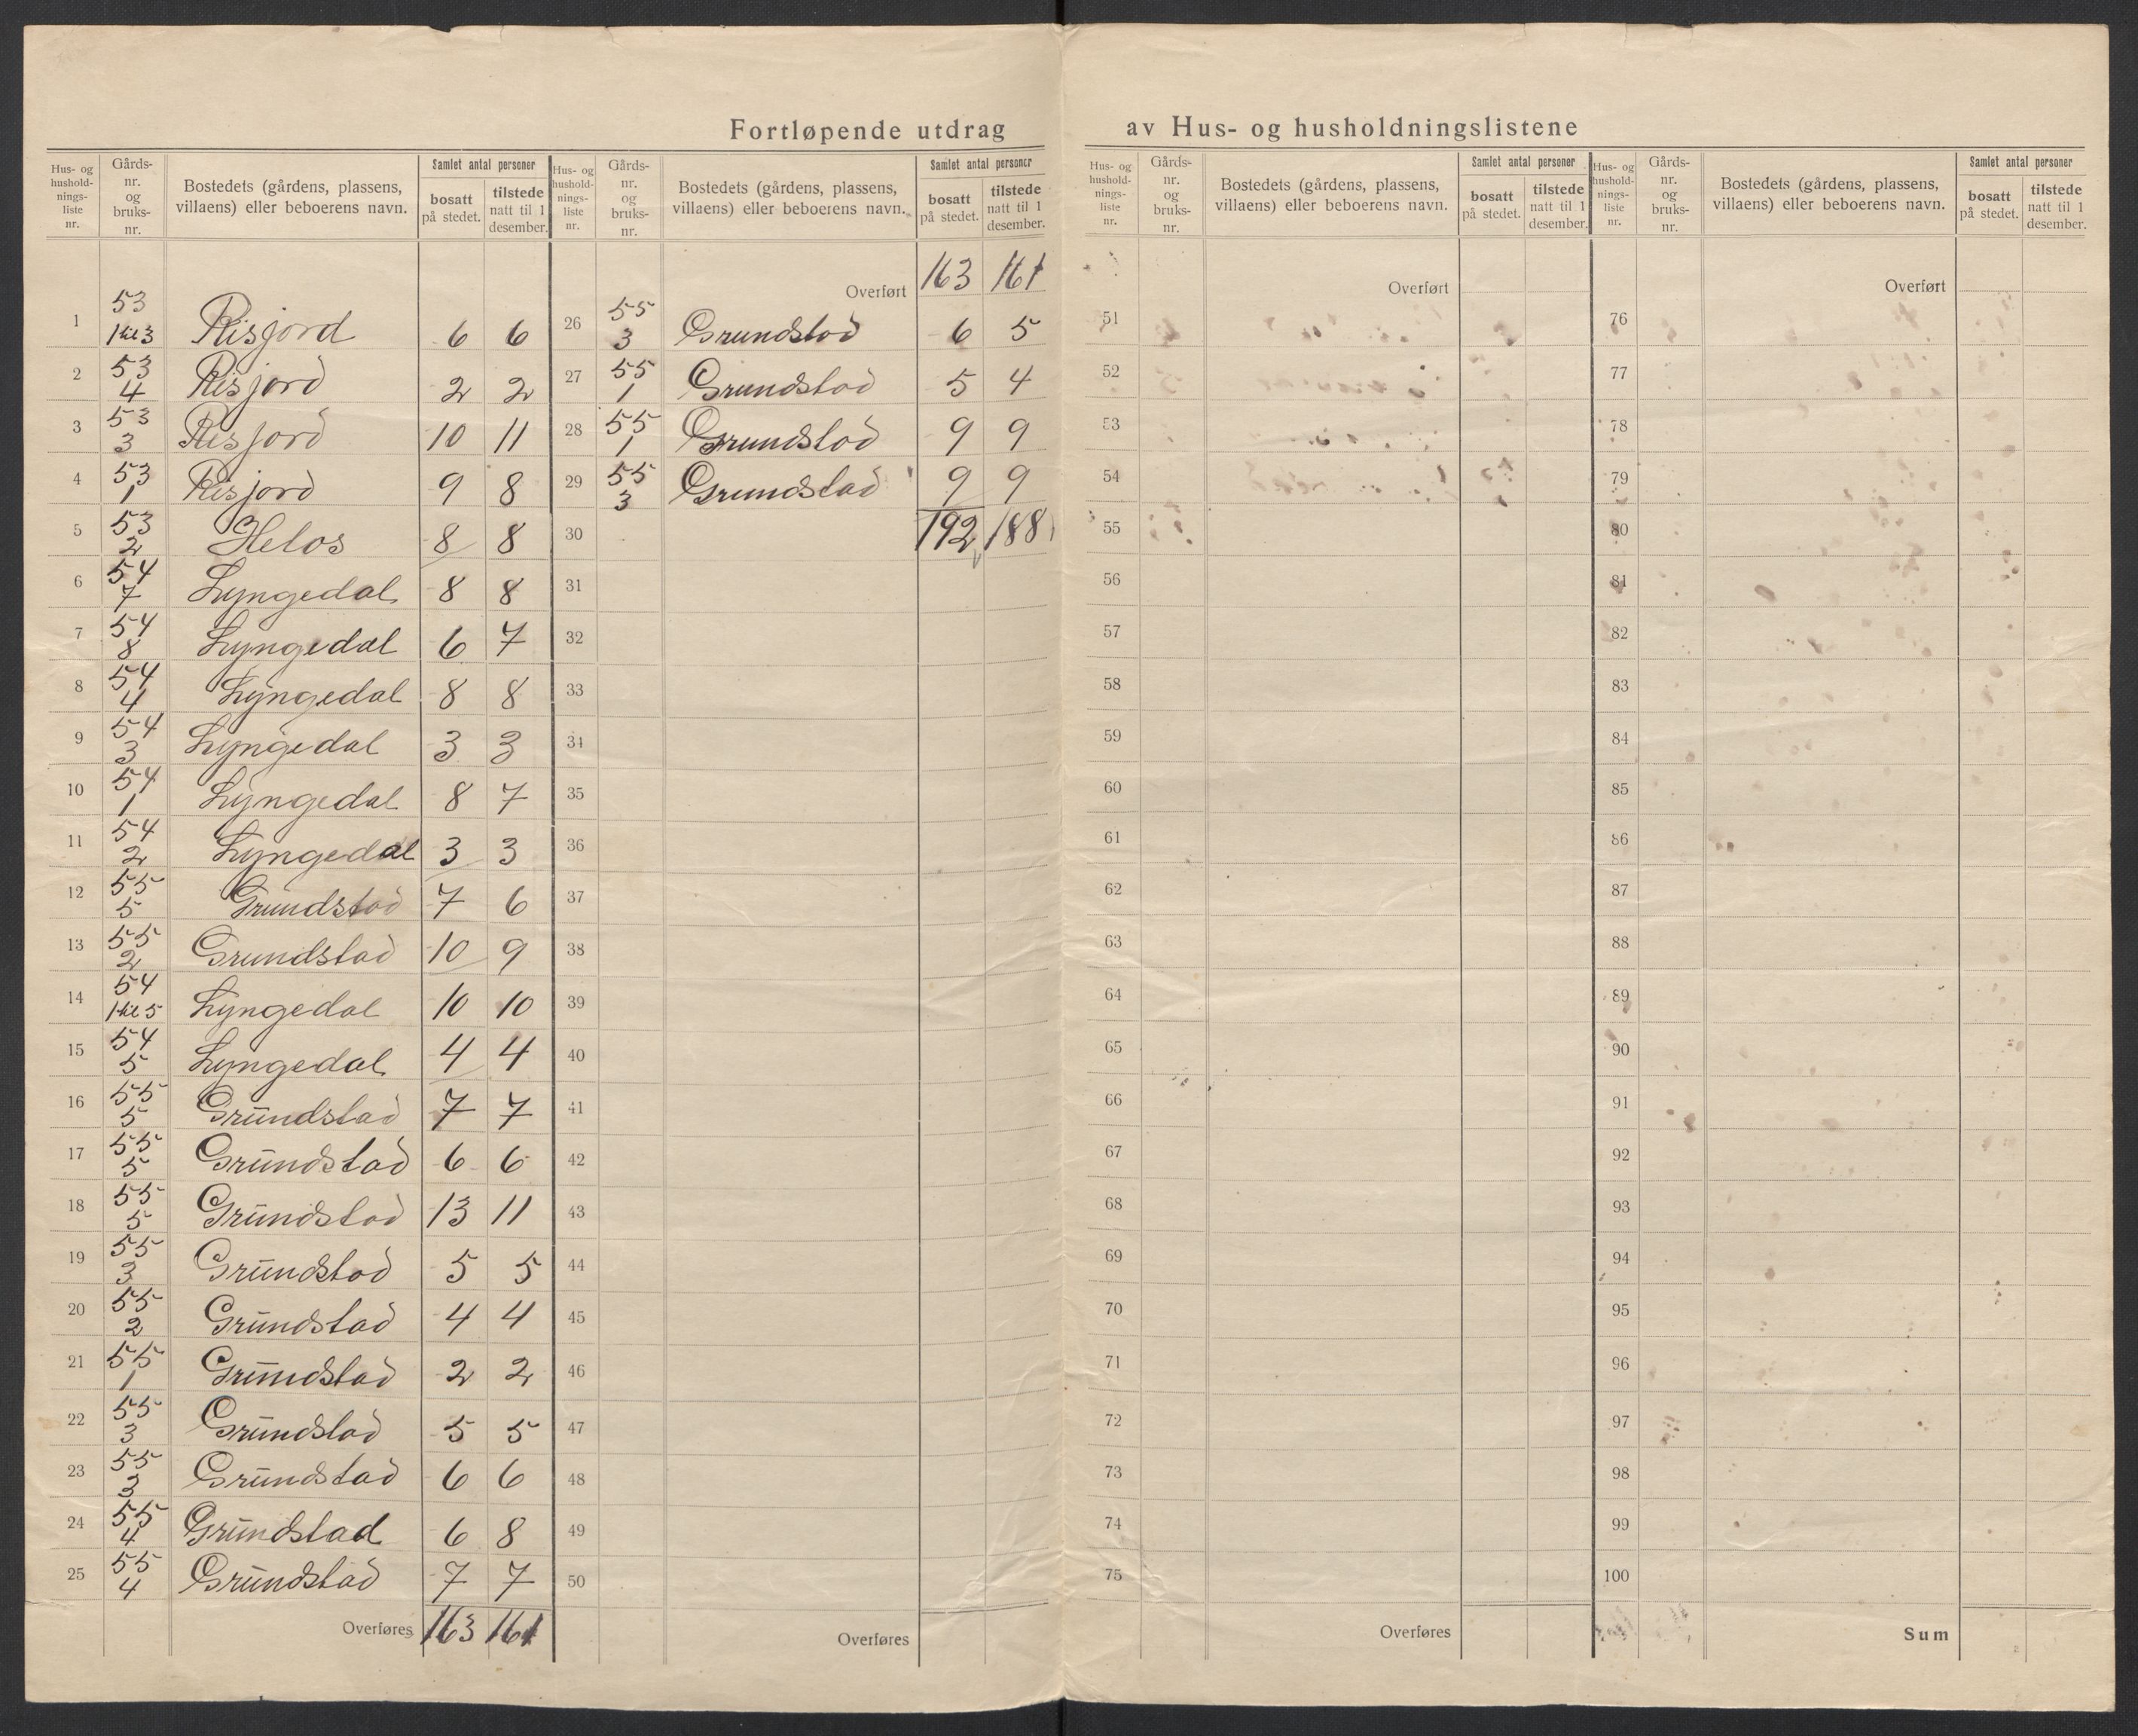 Fortløpende utdrag av Hus- og husholdningslistene
Hus- og husholdnings-liste nr. Gårds-nr. og bruks-nr. Bostedets (gårdens, plassens, villaens) eller beboerens navn. Samlet antal personer bosatt på stedet. tilstede natt til 1 desember.
1 53 1 til 3 Risjord 6 6
2 53 4 Risjord 2 2
3 53 3 Risjord 10 11
4 53 1 Risjord 9 8
5 53 2 Helos 8 8
6 54 7 Lyngedal 8 8
7 54 8 Lyngedal 6 7
8 54 4 Lyngedal 8 8
9 54 3 Lyngedal 3 3
10 54 1 Lyngedal 8 7
11 54 2 Lyngedal 3 3
12 55 5 Grundstad 7 6
13 55 2 Grundstad 10 9
14 54 1 til 5 Lyngedal 10 10
15 54 5 Lyngedal 4 4
16 55 5 Grundstad 7 7
17 55 5 Grundstad 6 6
18 55 5 Grundstad 13 11
19 55 3 Grundstad 5 5
20 55 2 Grundstad 4 4
21 55 1 Grundstad 2 2
22 55 3 Grundstad 5 5
23 55 3 Grundstad 6 6
24 55 4 Grundstad 6 8
25 55 4 Grundstad 7 7
Overføres 163 161
Hus- og husholdnings-liste nr. Gårds-nr. og bruks-nr. Bostedets (gårdens, plassens, villaens) eller beboerens navn. Samlet antal personer bosatt på stedet. tilstede natt til 1 desember.
Overført 163 161
26 55 3 Grundstad 6 5
27 55 1 Grundstad 5 4
28 55 1 Grundstad 9 9
29 55 3 Grundstad 9 9
30 192 188
31
32
33
34
35
36
37
38
39
40
41
42
43
44
45
46
47
48
49
50
Overføres
Hus- og husholdnings-liste nr. Gårds-nr. og bruks-nr. Bostedets (gårdens, plassens, villaens) eller beboerens navn. Samlet antal personer bosatt på stedet. tilstede natt til 1 desember.
Overført
51
52
53
54
55
56
57
58
59
60
61
62
63
64
65
66
67
68
69
70
71
72
73
74
75
Overføres
Hus- og husholdnings-liste nr. Gårds-nr. og bruks-nr. Bostedets (gårdens, plassens, villaens) eller beboerens navn. Samlet antal personer bosatt på stedet. tilstede natt til 1 desember.
Overført
76
77
78
79
80
81
82
83
84
85
86
87
88
89
90
91
92
93
94
95
96
97
98
99
100
Sum